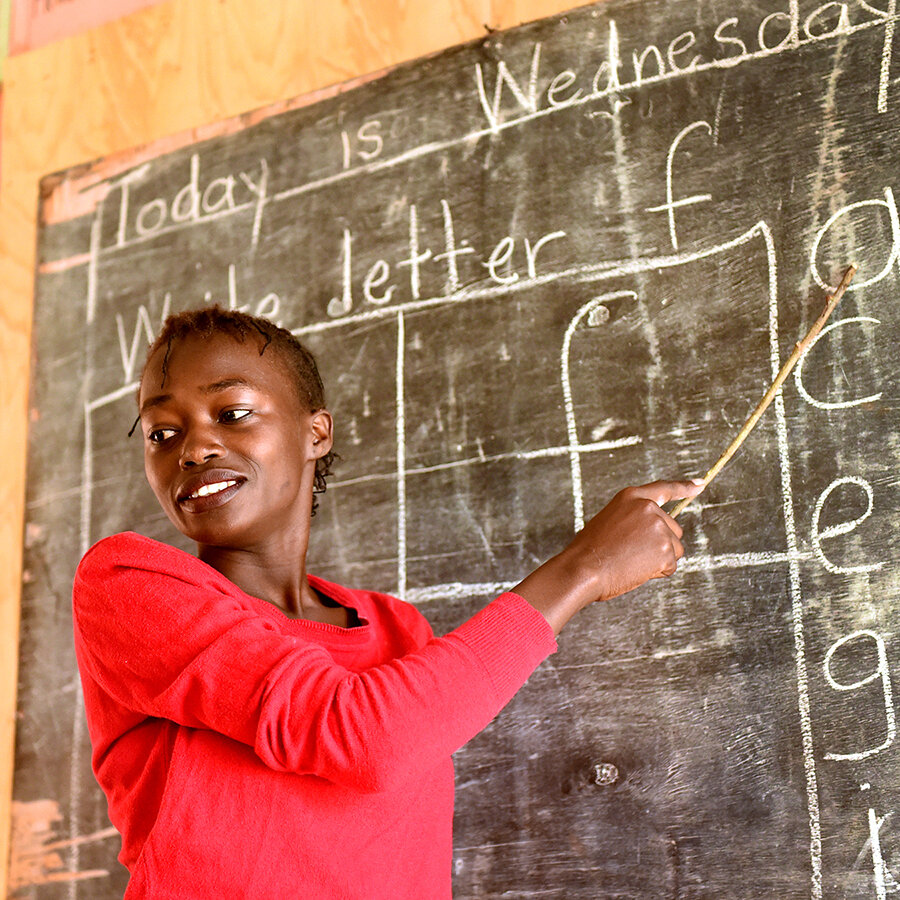 Today is Wednesday
Write letter f
f
a
c
e
g
i